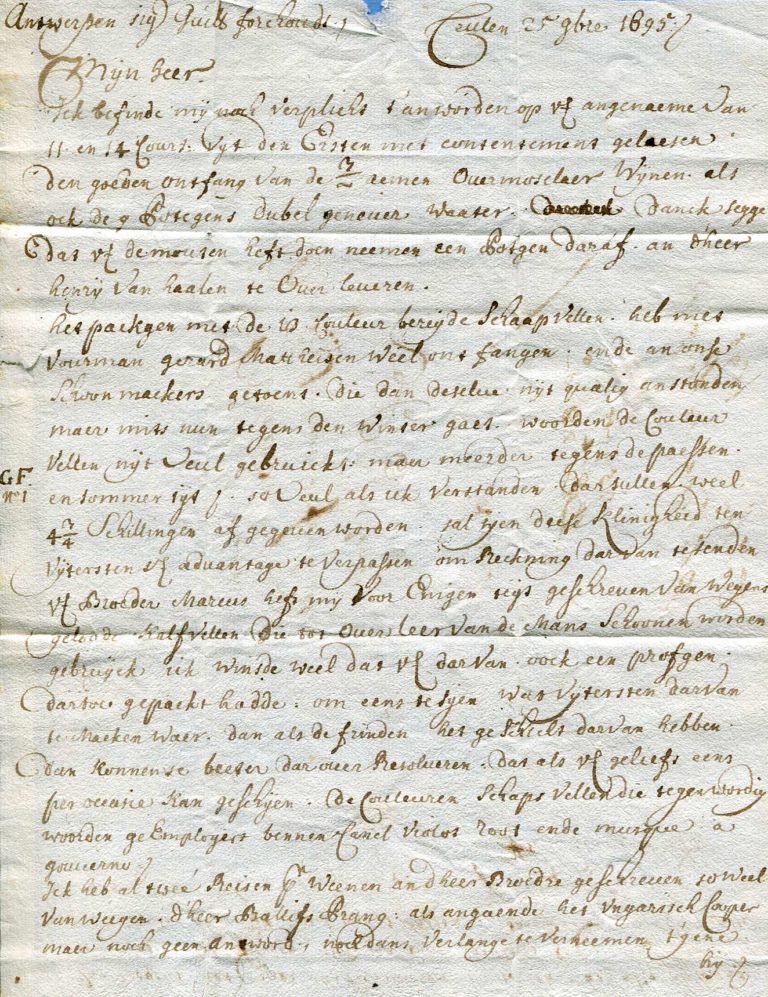 Antwerpen sigr Guill forchoudt, Ceulen 25 9bre 1695
Mijn heer
Ick befinde mij noch verplicht t'anworden op vE angenaeme van
11 en 14 Cours: uyt den Ersten met contentement gelaesen
den goeden ontfang van de 3/2 aemen Overmoselaer Wijnen. als
ock de 9 Potegens dubel genever waater. Danck segge
dat vE de mouten heft doen neemen een Potgen daraf. an d'heer
henrij van haalen te Over leveren.
het packgen met de 13 Couleur bereyde Schaap Vellen. heb met
Vourman gerard Mattheisen Weel ontfangen. ende an onse
Schoonmaekers getoent. die dan deselve nyt qualig anstonden
maer mits nun tegens den Winter gaet. woorden de Couleur
Vellen nijt veul gebruickt. maer meerder tegens de paessen.
GF
No 1
en sommer tyt. so veul als ick verstanden dar sullen weel
4 3/4 Schillingen af gegeven worden. sal syen deese klinigheid ten
uytersten vE advantage te verpassen om Reckning dar van te senden
vE Broeder Marcus heft mij voor Enigen teyt geschreven van wegens
gelodde kalf vellen die tot Over leer van de Mans Schoonen worden
gebruyck ick winsde weel dat vE dar van. oock een profgen.
dartoe gepackt hadde. om eens te syen wat uytersten darvan
te maeken waer. dan als de frinden het gesicht darvan hebben.
dan konnen se beeter dar over Resolveren. dat als vE geliefs eens
per occasie kan geschijen. de Couleuren Schaps Vellen die tegenwordig
woorden geEmployert bennen Canel violet root ende musque a
gouverno
Ick heb al twee Reisen pr Weenen an d'heer Broedre geschreven so weel
van weegen. d'heer Prang: als angaende het ungarisch Coper
maer noch geen antword, noch dans verlange te verneemen t'gene
bij